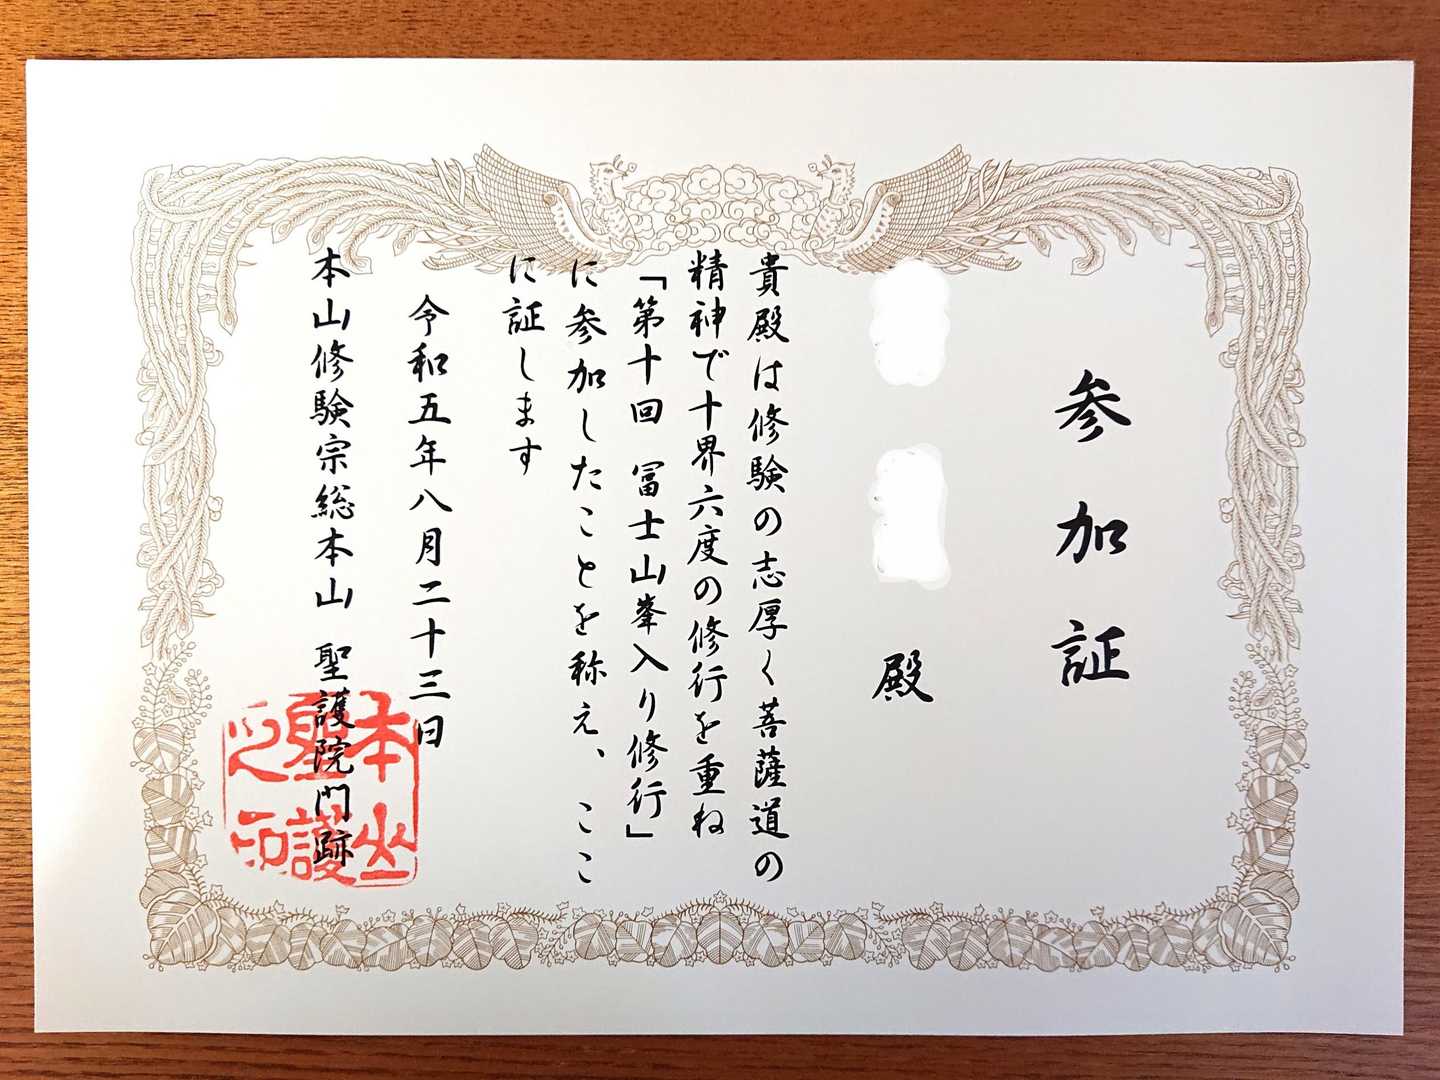 参加証
殿
貴殿は修験の志厚く菩薩道の
精神で十界六度の修行を重ね
「第十回 冨士山峯入り修行」
に参加したことを称え、ここ
に証します
令和五年八月二十三日
本山修験宗総本山 聖護院門跡
本山
聖護